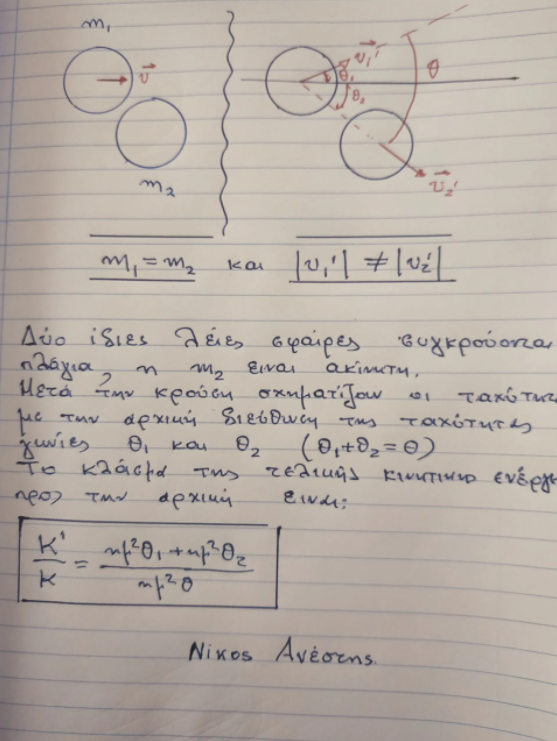 m₁
v⃗
m₂
v⃗₁'
θ₁
θ
θ₂
v⃗₂'
m₁ = m₂ και |v₁'| ≠ |v₂'|
Δύο ίδιες λείες σφαίρες συγκρούονται
πλάγια, η m₂ ειναι ακίνητη.
Μετά την κρούση σχηματίζουν οι
με την αρχική διεύθυνση της ταχύτητας
γωνίες θ₁ και θ₂ (θ₁+θ₂=θ)
Το κλάσμα της τελικής
προς την αρχική ειναι:
K'/K = (ημ²θ₁ + ημ²θ₂)/ημ²θ
Νίκος Ανέστης.